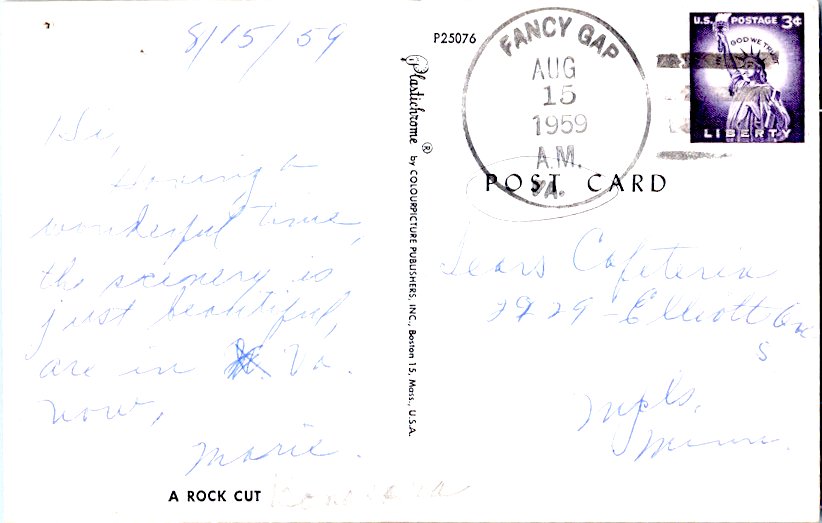 8/15/59
Hi,
Having a
wonderful time,
the scenery is
just beautiful,
are in Va.
now,
Marie.
A ROCK CUT
P25076
Plastichrome ® by COLOURPICTURE PUBLISHERS, INC., Boston 15, Mass., U.S.A.
FANCY GAP
AUG
15
1959
A.M.
VA.
U.S. POSTAGE 3¢
IN GOD WE TRUST
LIBERTY
POST CARD
Sears Cafeteria
2929 - Elliott Ave
S
Mpls,
Minn.